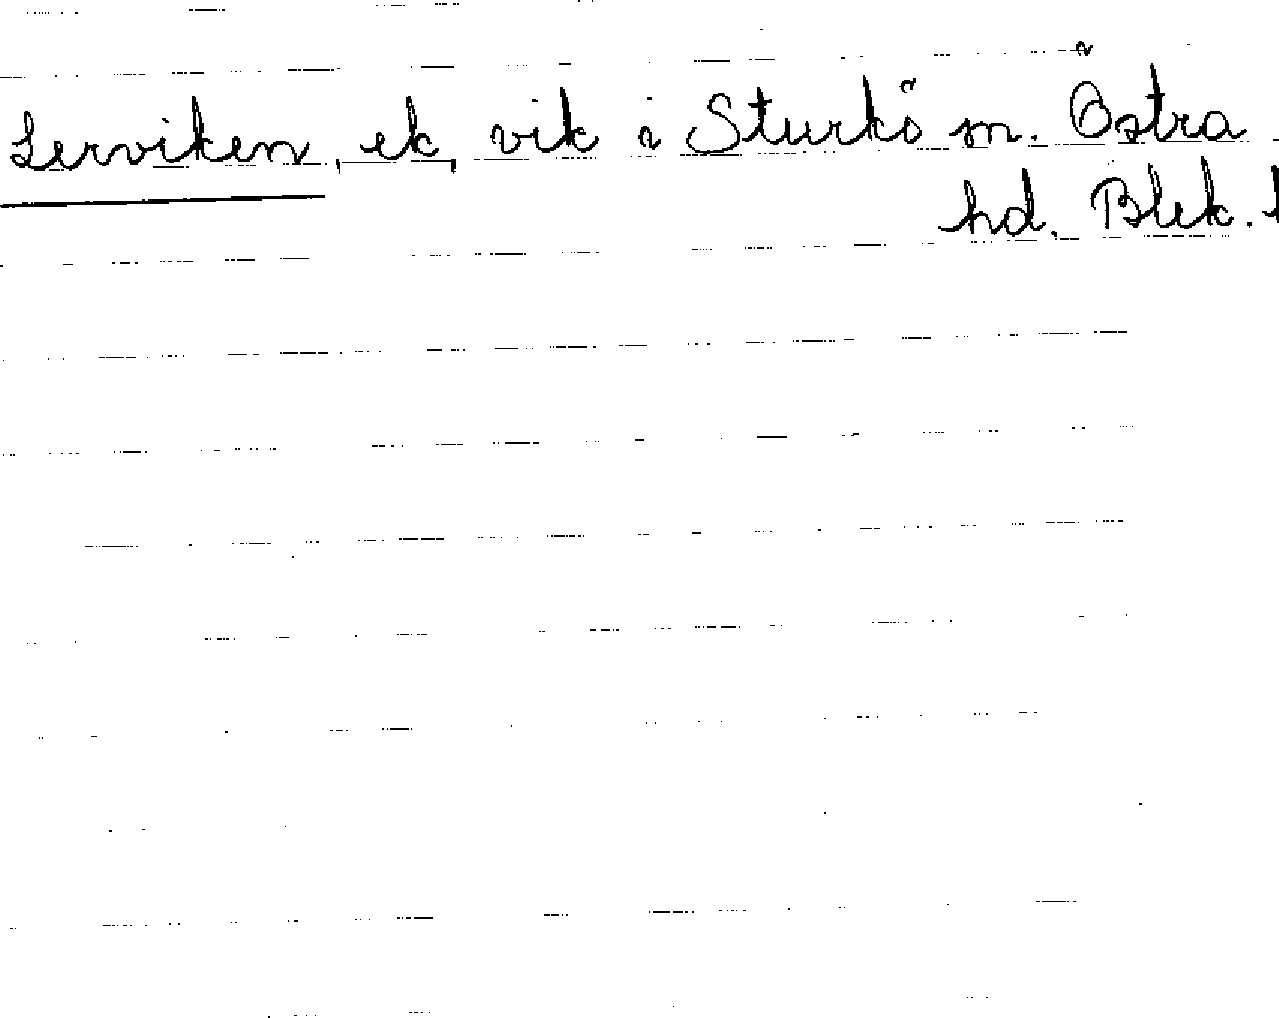 Lerviken, ek, vik i Sturkö sn. Östra
hd. Blek. l